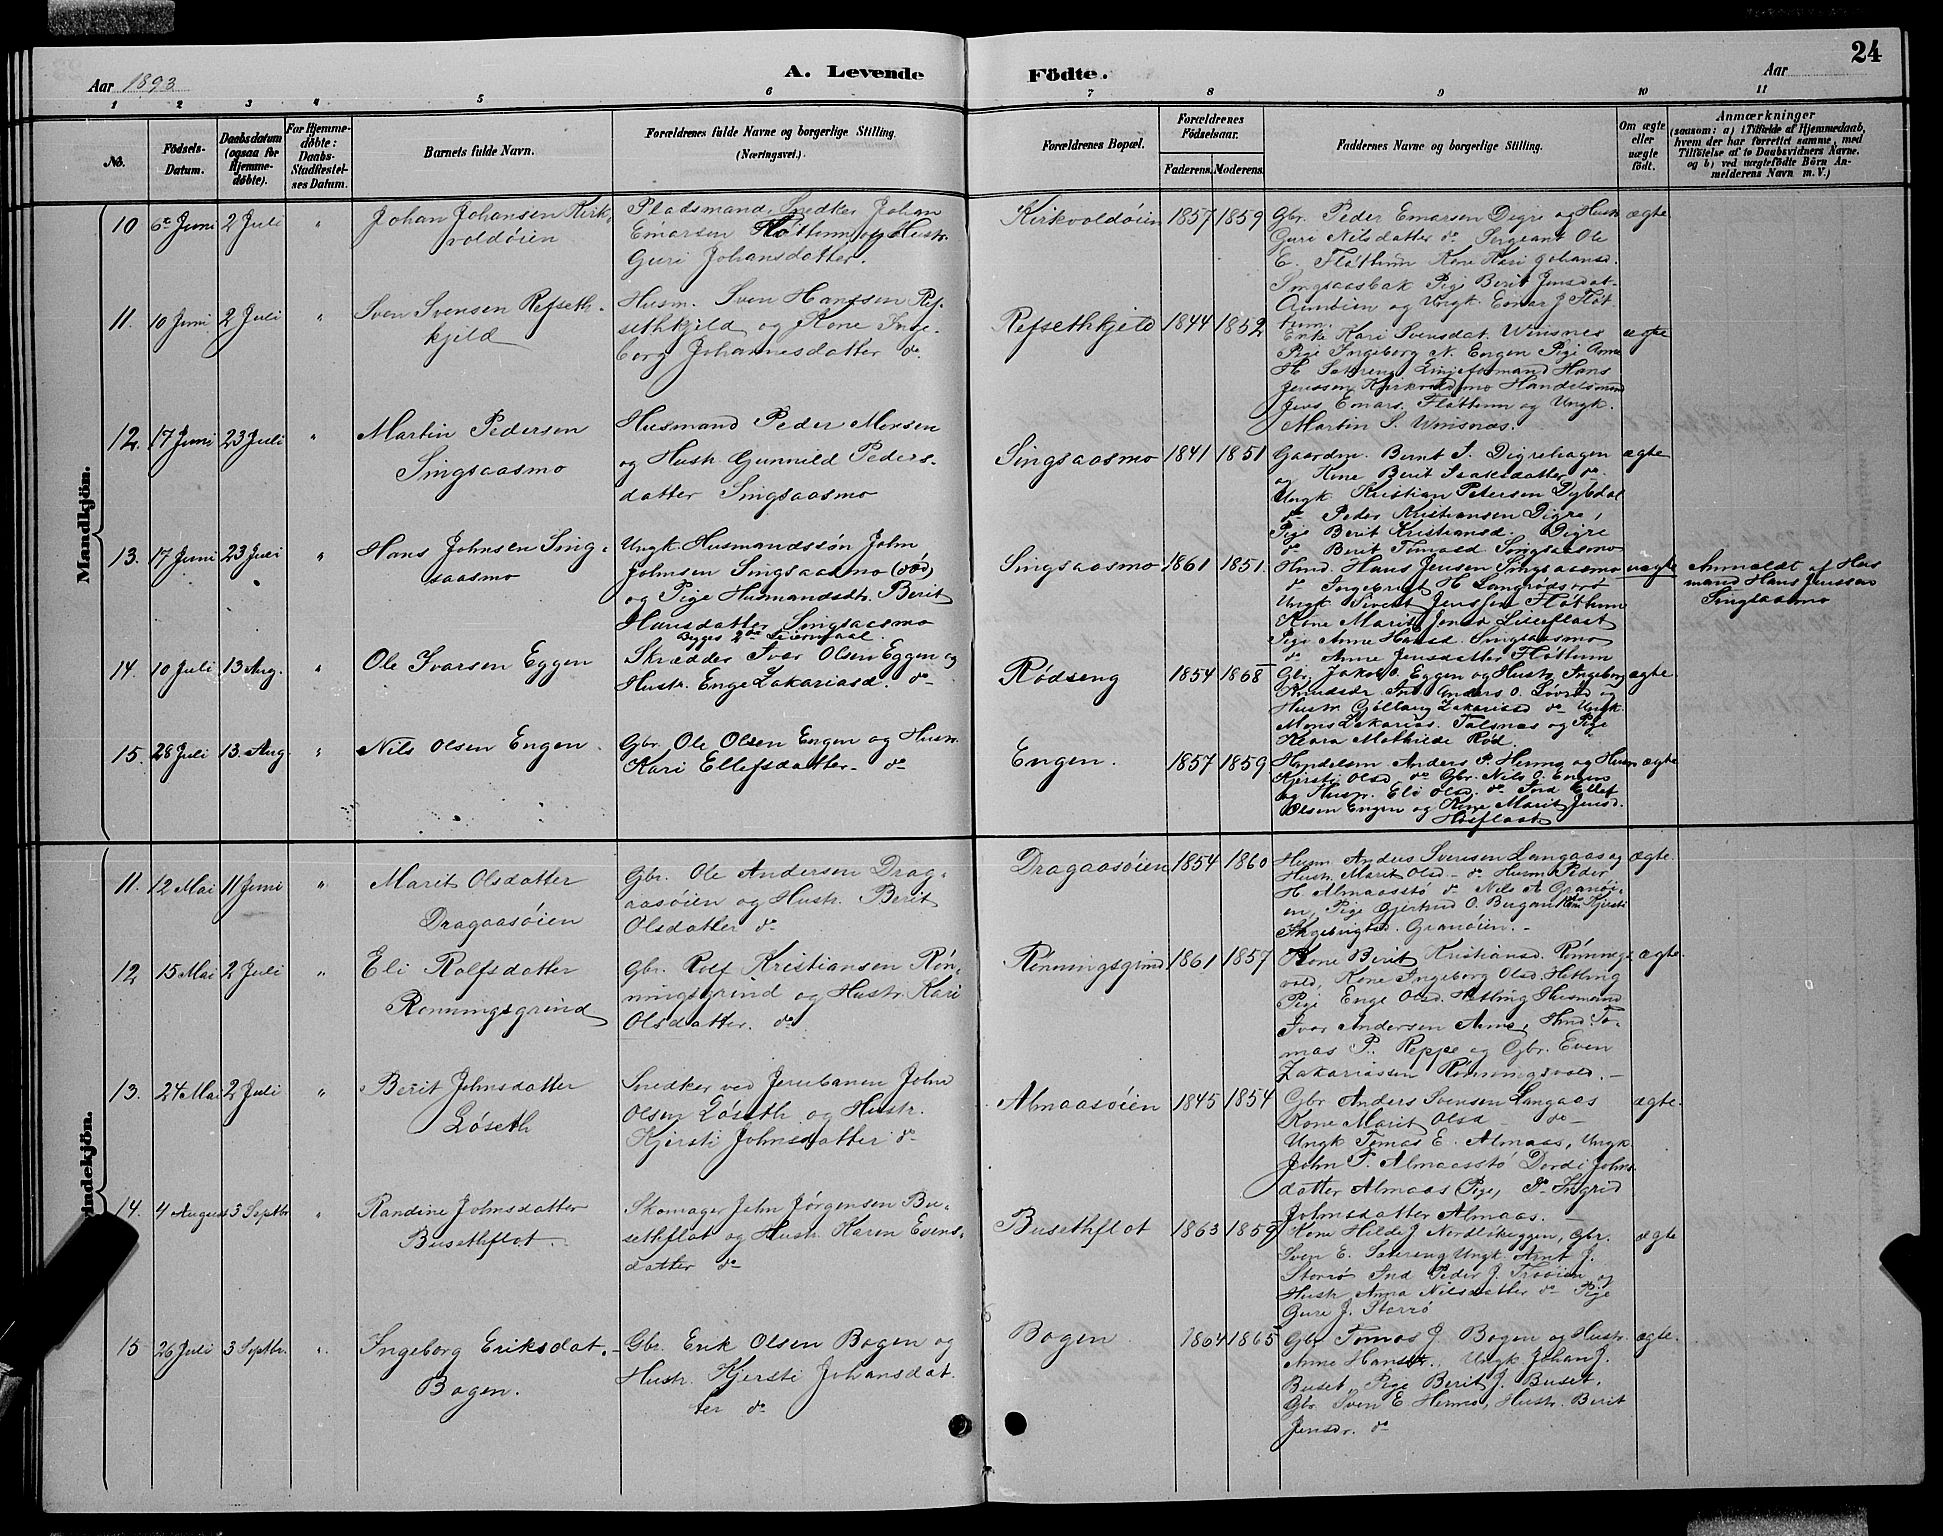 24
Aar 1893
A. Levende Födte.
Aar
1 2 3 4 5 6 7 8 9 10 11
No.
Födsels-Datum.
Daabsdatum (ogsaa for Hjemme-döbte).
For Hjemme-döbte: Daabs-Stadfæstel-ses Datum.
Barnets fulde Navn.
Forældrenes fulde Navne og borgerlige Stilling. (Næringsvei.)
Forældrenes Bopæl.
Forældrenes Födselsaar.
Faderens. Moderens.
Faddernes Navne og borgerlige Stilling.
Om ægte eller uægte födt.
Anmærkninger
(saasom: a) i Tilfælde af Hjemmedaab, hvem der har forrettet samme, med Tilföielse af to Daabsvidners Navne, og b) ved uægtefödte Börn Anmelderens Navn m. V.)
Mandkjön.
10 6te Juni 2 Juli "
Johan Johansen Kirk-
voldöien
Pladsmand, Snedker Johan
Emarsen Flöttum og Hustr.
Guri Johansdatter.
Kirkvoldöien 1857 1859
Gbr. Peder Emarsen Digre og Hustr
Guri Nilsdatter do Sergeant Ole
E. Flöttum Kone Kari Johansd.
Singsaasbak Pige Berit Jensdat-
og Ungk. Emar J Flöt-
tum.
ægte
11. 10 Juni 2 Juli "
Sven Svensen Refseth-
kjeld
Husm. Sven Hanssen Ref-
sethkjeld og Kone Inge-
borg Johannesdatter do.
Refsethkjeld 1844 1852
Enke Kari Svensdat. Winsnes
Pige Ingeborg N. Engen Pige Anne
H. Sætereng Linjeformand Hans
Jenssen Kirkvoldmo Handelsmand
Jens Emars. Flöttum og Ungk.
Martin S. Winsnæs.
ægte
12. 17 Juni 23 Juli "
Martin Pedersen
Singsaasmo
Husmand Peder Monsen
og Hustr. Gunnild Peders-
datter Singsaasmo
Singsaasmo 1841 1851
Gaardm. Bernt I. Digrehagen
og Kone Berit Isaksdatter do
Ungk. Kristian Petersen Dybdal
do Peder Kristiansen Digre,
Pige Berit Kristiansd. Digre
do Berit Tomasd. Singsaasmo
ægte
13. 17 Juni 23 Juli "
Hans Johnsen Sing-
saasmo
Ungk. Husmandssön John
Johnsen Singsaasmo (död)
og Pige Husmandsdtr. Berit
Hansdatter Singsaasmo
Begges 2de Leiermaal.
Singsaasmo 1861 1851.
Hmd. Hans Jensen Singsaasmo
do Ingebrigt H.
Ungk. Sivert Jenssen Flöttum
Kone Marit Jensd. Lillefloat
Pige Anne Hansd. Singsaasmo
do Anne Jensdatter Flöttum
uægte
Anmeldt af Hus
mand Hans Jenssen
Singsaasmo
14. 10 Juli 13 Aug. "
Ole Ivarsen Eggen
Skrædder Ivar Olsen Eggen og
Hustr. Enge Zakariasd. do
Rödseng 1854 1868
Gbr. Jakob O. Eggen og Hustr. Ingeborg
Knudsdr. Ind. Anders O.
Hustr. Zakariasd do Ungk.
Mons Zakarias. Talsnæs og Pige
Klara Mathilde Röd.
ægte
15. 28 Juli 13. Aug. "
Nils Olsen Engen.
Gbr. Ole Olsen Engen og Hustr.
Kari Ellefsdatter do
Engen. 1857 1859
Handelsm. Anders P. Hermo og Hustr
Kjersti Olsd do Gbr. Nils O. Engen
og Hustr. Eli Olsd. do Ellef
Olsen Engen og Kone Marit Jensd.
Hosflaat
ægte
Kvindekjön.
11. 12 Mai 11 Juni "
Marit Olsdatter
Dragaasöien
Gbr. Ole Andersen Drag-
aasöien og Hustr. Berit
Olsdatter do
Dragaasöien 1854 1860
Husm. Anders Svensen Langaas og
Hustr. Marit Olsd. do Husm Peder
H. Almaasstö do Nils A Granöi-
en, Pige Gjertrud O. Kone Kjersti
Ingebrigtsd. Granöien.
ægte.
12 15 Mai 2 Juli "
Eli Rolfsdatter
Rönningsgrind
Gbr. Rolf Kristiansen Rön-
ningsgrind og Hustr. Kari
Olsdatter. do
Rönningsgrind 1861 1857
Kone Berit Kristiansd. Rönnings-
vold, Kone Ingeborg Olsd. Hetling
Pige Enge Olsd. Hetling Husmand
Ivar Andersen Hmd. To-
mas P. Reppe og Gbr. Even
Zakariassen Rönningsvold.
ægte.
13. 24 Mai 2 Juli "
Berit Johnsdatter
Löseth
Snedker ved Jernbanen John
Olsen Löseth og Hustr.
Kjersti Johnsdatter do
Almaasöien 1845 1854
Gbr Anders Svensen Langaas
Kone Marit Olsd do
Ungk Tomas E. Almaas, Ungk.
John P. Almaasstö Dordi Johns-
datter Almaas Pige, do Ingrid
Johnsdatter Almaas.
ægte.
14. 4 August 3 Septbr. "
Randine Johnsdatter
Busethflot
Skomager John Jörgensen Bu-
sethflot og Hustr. Karen Evens-
datter do
Busethflot 1863 1859
Kone Hilde J Nordlökeggen, Gbr.
Sven E. Sætereng Ungk. Arnt J.
Storrö Ind Peder J. og
Hustr. Anna Nilsdatter do Pige
Guri J. Storrö
ægte
15 26 Juli 3 Septbr. "
Ingeborg Eriksdat.
Bogen.
Gbr. Erik Olsen Bogen og
Hustr. Kjersti Johansdat-
ter do
Bogen 1864 1865
Gbr Tomas J. Bogen og Hustr.
Anne Hansdr. Ungk. Johan J.
Buset, Pige Berit J. Buset,
Gbr. Sven E Hermo, Hustr. Berit
Jensdr. do
ægte.